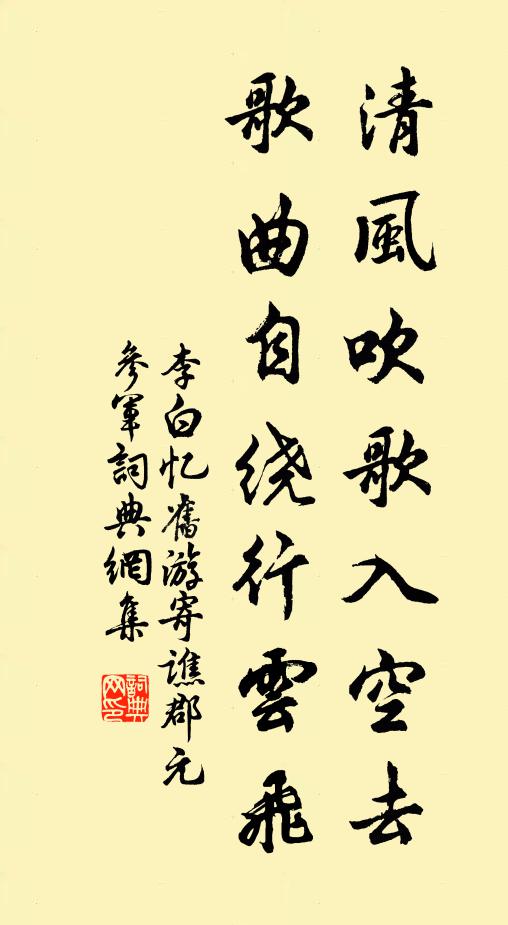 清風吹歌入空去
歌曲自绕行雲飛
李白忆舊游寄譙郡元
參軍詞典網集
詞典网印